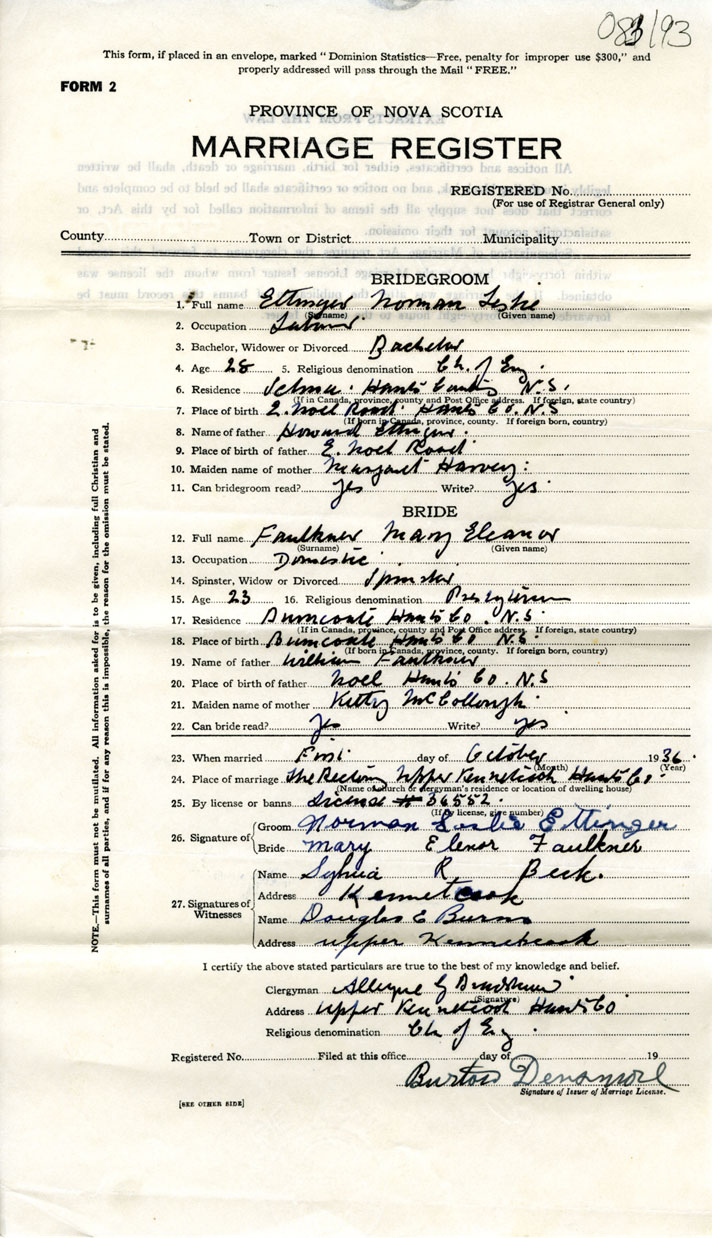 083/93
This form, if placed in an envelope, marked "Dominion Statistics—Free, penalty for improper use $300," and
properly addressed will pass through the Mail "FREE."
FORM 2
PROVINCE OF NOVA SCOTIA
MARRIAGE REGISTER
REGISTERED No.
(For use of Registrar General only)
County Town or District Municipality
BRIDEGROOM
1. Full name Ettinger Norman Leslie
(Surname) (Given name)
2. Occupation Labour
3. Bachelor, Widower or Divorced Bachelor
4. Age 28 5. Religious denomination Ch. of Eng.
6. Residence Selma Hants County N.S.
(If in Canada, province, county and Post Office address. If foreign, state country)
7. Place of birth E. Noel Road Hants Co. N.S
(If born in Canada, province, county. If foreign born, country)
8. Name of father Howard Ettinger
9. Place of birth of father E. Noel Road
10. Maiden name of mother Margaret Harvey
11. Can bridegroom read? Yes Write? Yes
BRIDE
12. Full name Faulkner Mary Eleanor
(Surname) (Given name)
13. Occupation Domestic
14. Spinster, Widow or Divorced Spinster
15. Age 23 16. Religious denomination Presbyterian
17. Residence Burncoate Hants Co. N.S
(If in Canada, province, county and Post Office address. If foreign, state country)
18. Place of birth Burncoate Hants Co. N.S.
(If born in Canada, province, county. If foreign born, country)
19. Name of father William Faulkner
20. Place of birth of father Noel Hants Co. N.S
21. Maiden name of mother Kitty McCollough
22. Can bride read? Yes Write? yes
23. When married First day of October 1936
(Month) (Year)
24. Place of marriage The Rectory Upper Kennetcook Hants Co.
(Name of church or clergyman's residence or location of dwelling house)
25. By license or banns License # 36552
(If by license, give number)
26. Signature of Groom Norman Leslie Ettinger
Bride Mary Elenor Faulkner
27. Signatures of Witnesses
Name Sylvia R. Beck.
Address Kennetcook
Name Douglas E Burns
Address Upper Kennetcook
I certify the above stated particulars are true to the best of my knowledge and belief.
Clergyman G
(Signature)
Address Upper Kennetcook Hants Co
Religious denomination Ch of Eng.
Registered No. Filed at this office day of 19
Burton Densmore
Signature of Issuer of Marriage License.
[SEE OTHER SIDE]
NOTE.—This form must not be mutilated. All information asked for is to be given, including full Christian and
surnames of all parties, and if for any reason this is impossible, the reason for the omission must be stated.